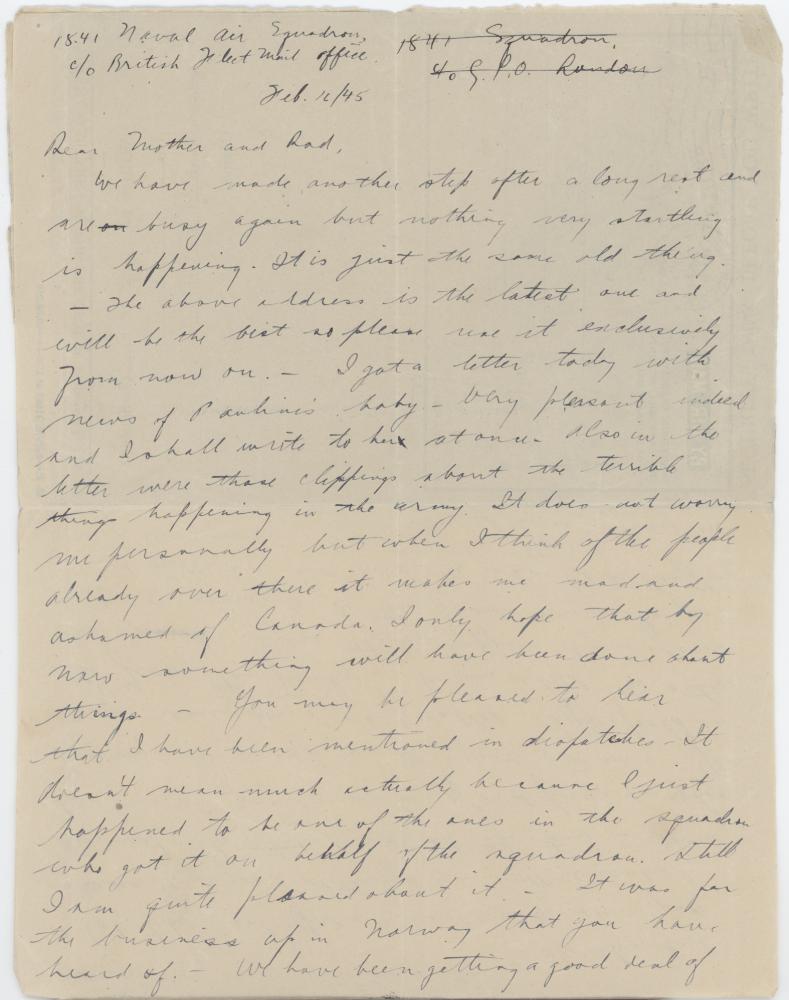 1841 Naval Air Squadron,
c/o British Fleet Mail Office.
1841 Squadron,
c/o G.P.O. London
Feb. /45
Dear Mother and Dad,
We have made another step after a long rest and
are on busy again but nothing very startling
is happening. It is just the same old thing.
— The above address is the latest one and
will be the best so please use it exclusively
from now on. — I got a letter today with
news of Pauline's baby — Very pleasant indeed
and I shall write to her at once. Also in the
letter were those clippings about the terrible
things happening in the army. It does not worry
me personally but when I think of the people
already over there it makes me mad and
ashamed of Canada. I only hope that by
now something will have been done about
things — You may be pleased to hear
that I have been mentioned in dispatches — It
doesn't mean much actually because I just
happened to be one of the ones in the squadron
who got it on behalf of the squadron. Still
I am quite pleased about it. — It was for
the business up in Norway that you have
heard of. — We have been getting a good deal of